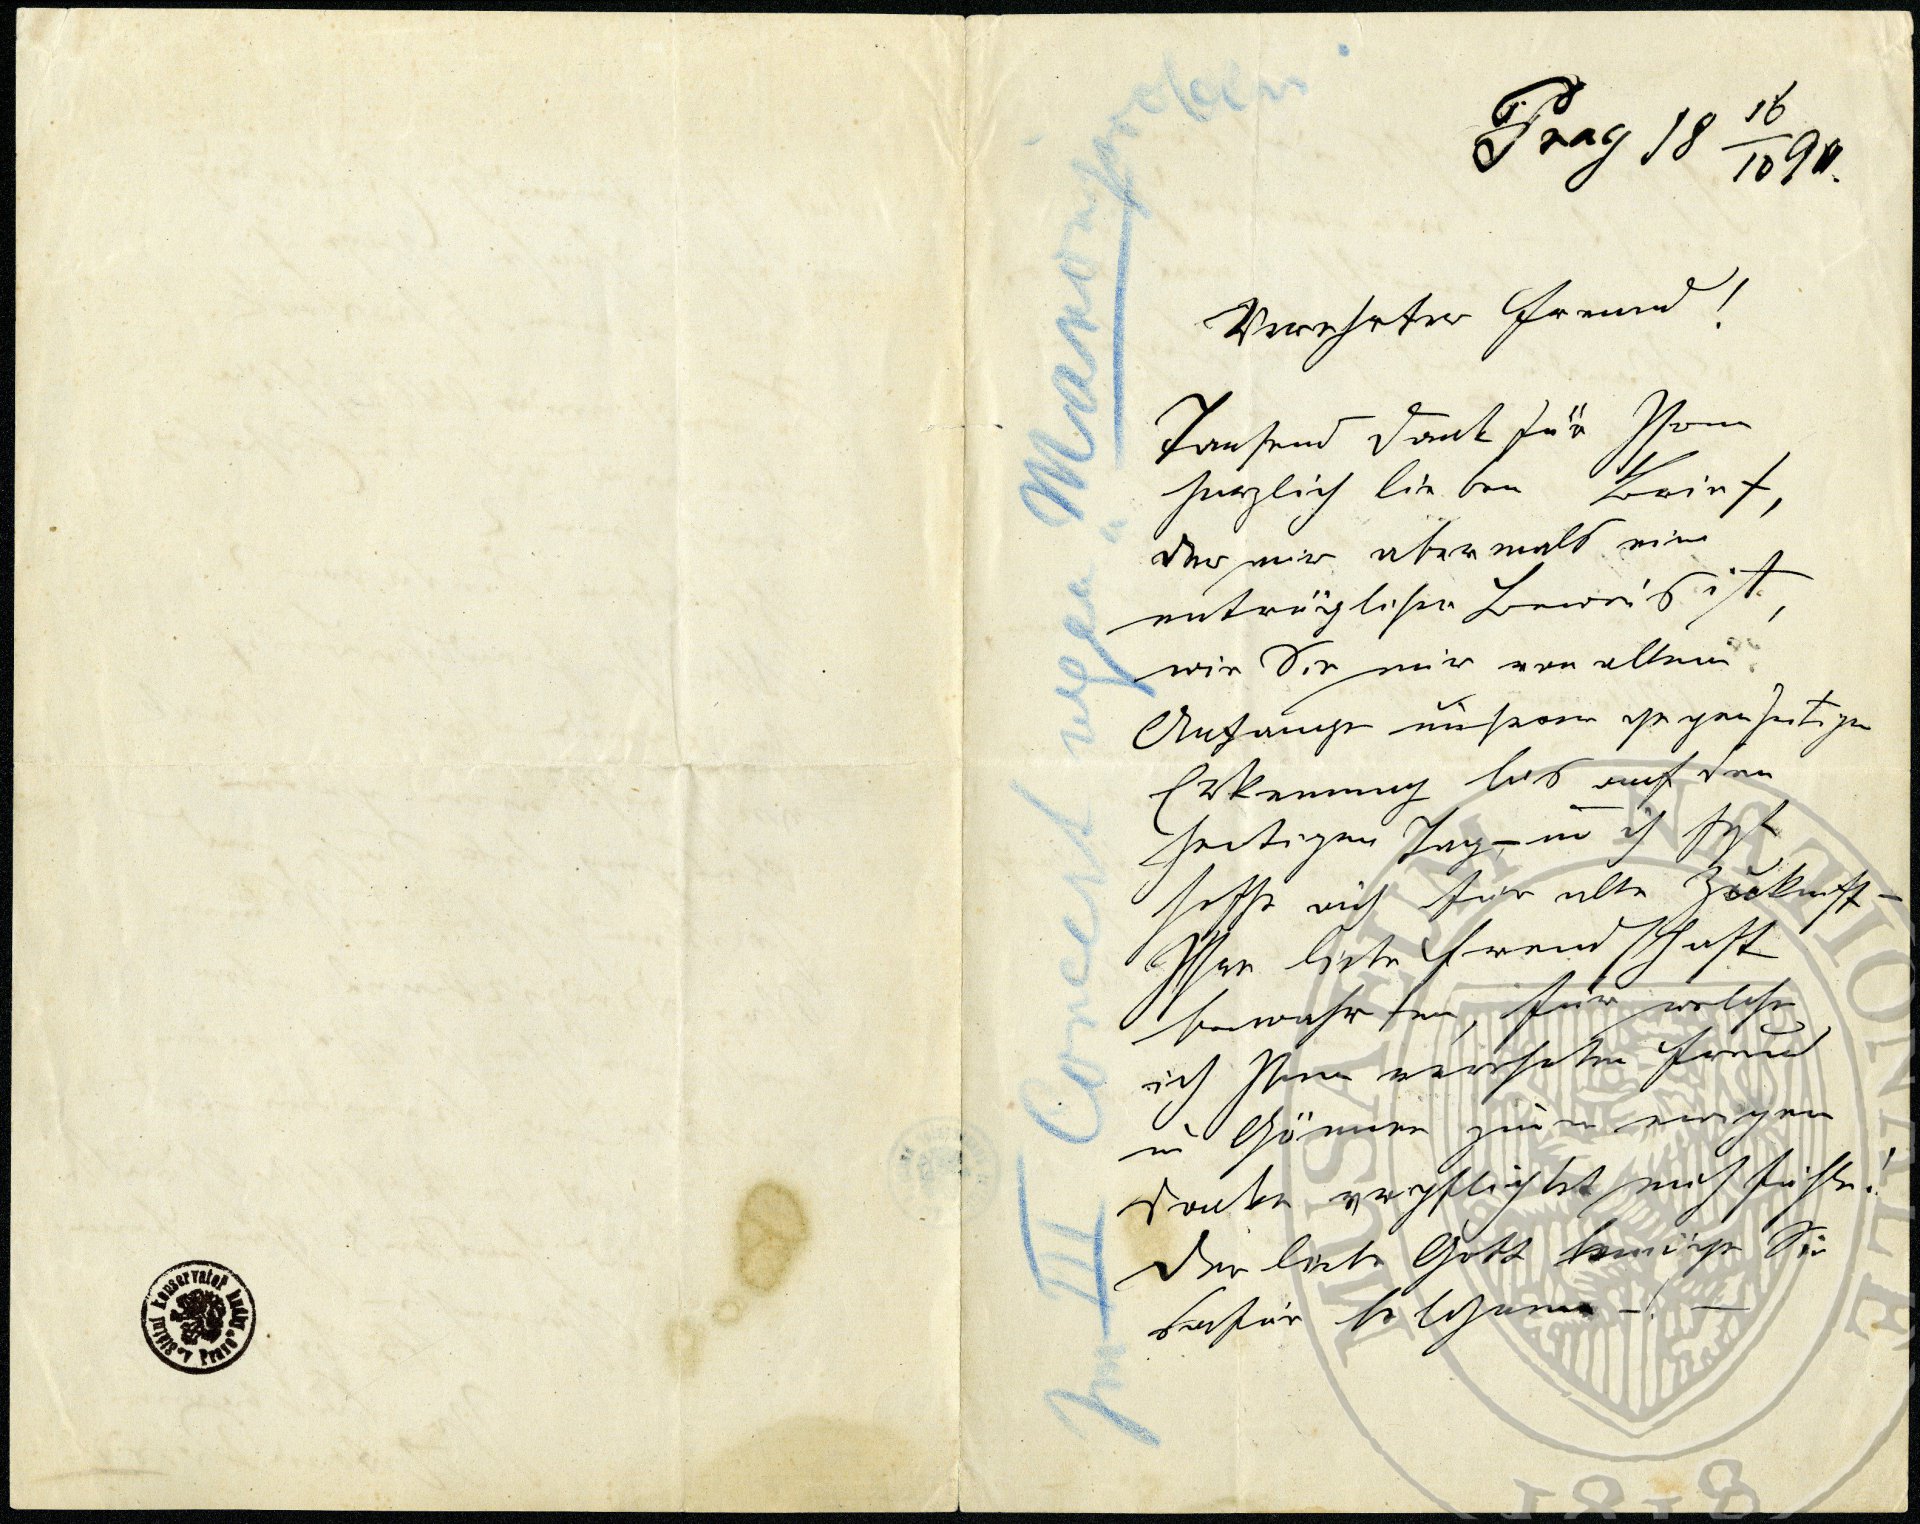 Prag 18 16/10 90.
Verehrter Freund!
Tausend Dank für Ihren
herzlich lieben Brief,
der mir abermals ein
untrüglicher Beweis ist,
wie Sie mir von allem
Anfange unserer gegenseitigen
Erkennung bis auf den
heutigen Tag – u ich fest
hoffe auch für alle Zukunft –
Ihre liebe Freundschaft
bewahrten, für welche
ich Ihnen verehrter Freund
u Gönner zum ewigen
Danke verpflichtet mich fühle!
Der liebe Gott Sie
dafür belohnen – ! –
Im III Concert
MUSEUM NATIONALE
1818
konservatoř hudby v Praze